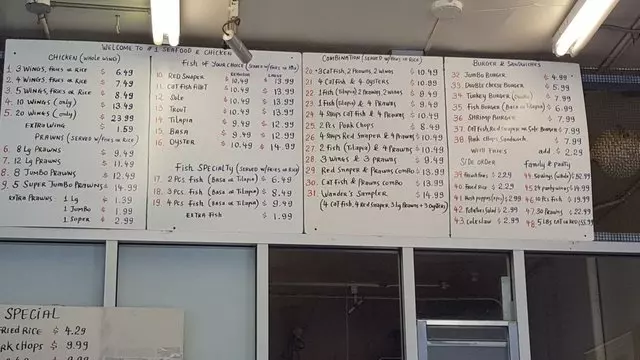 WELCOME TO #1 SEAFOOD & CHICKEN
CHICKEN (WHOLE WING)
1 3 WINGS, FRIES OR RICE $ 6.49
2 4 WINGS, FRIES OR RICE $ 7.49
3 5 WINGS, FRIES OR RICE $ 8.49
4 10 WINGS (ONLY) $ 13.49
5 20 WINGS (ONLY) $ 23.99
EXTRA WING $ 1.59
PRAWNS (SERVED W/FRIES OR RICE)
6 8 LG PRAWNS $ 9.49
7 12 LG PRAWNS $ 11.49
8 8 JUMBO PRAWNS $ 12.49
9 5 SUPER JUMBO PRAWNS $ 14.99
EXTRA PRAWNS 1 LG $ 1.39
1 JUMBO $ 1.99
1 SUPER $ 2.99
FISH OF YOUR CHOICE (SERVED W/FRIES OR MIX)
10. RED SNAPER $ 13.99
11. CATFISH FILET $ 13.99
12 SOLE $ 13.99
13 TROUT $ 13.99
14 TILAPIA $ 9.49 $ 12.99
15 BASA $ 9.49 $ 12.99
16 OYSTER $ 10.49 $ 14.99
FISH SPECIALTY (SERVED W/FRIES OR RICE)
17. 2 PCS FISH (BASA OR TILAPIA) $ 6.49
18. 3 PCS FISH (BASA OR TILAPIA) $ 8.49
19. 4 PCS FISH (BASA OR TILAPIA) $ 9.49
EXTRA FISH $ 1.99
COMBINATION (SERVED W/FRIES OR RICE)
20 3 CATFISH, 2 PRAWNS, 2 WINGS $ 10.49
21 4 CATFISH & 4 OYSTERS $ 10.99
22 1 FISH (TILAPIA) 2 PRAWNS, 2 WINGS $ 9.49
23 1 FISH (TILAPIA) & 4 PRAWNS $ 9.49
24 4 STRPS CATFISH & 4 PRAWNS $ 10.49
25 2 PCS PORK CHOPS $ 8.49
26 4 STRPS RED SNAPER & 4 PRAWNS $ 10.49
27. 2 FISH (TILAPIA) & 4 PRAWNS $ 10.49
28 3 WINGS & 3 PRAWNS $ 9.49
29 RED SNAPER & PRAWNS COMBO $ 13.99
30. CATFISH & PRAWNS COMBO $ 13.99
31. WANDER'S SAMPLER $ 14.99
(4 CATFISH, 4 RED SNAPER, 3 LG PRAWNS & 3 OYSTERS)
BURGER & SANDWICHES
32 JUMBO BURGER $ 4.99
33 DOUBLE CHEESE BURGER $ 5.99
34 TURKEY BURGER $ 7.99
35 FISH BURGER (BASA OR TILAPIA) $ 6.99
36 SHRIMP BURGER $ 7.99
37 CATFISH, RED SNAPER OR SOLE BURGER $ 7.99
38 PORK CHOPS SANDWICH $ 7.99
WITH FRIES ADD $ 2.29
SIDE ORDER
39 FRENCH FRIES $ 2.29
40 FRIED RICE $ 2.29
41 HUSH PUPPIES $ 2.99
42 POTATOES SALAD $ 2.99
43 COLESLAW $ 2.99
FAMILY & PARTY
45 24 PARTY WINGS $ 19.99
46 10 PCS FISH $ 19.99
47 30 PRAWNS $ 22.99
SPECIAL
FRIED RICE $ 4.29
RK CHOPS $ 9.99